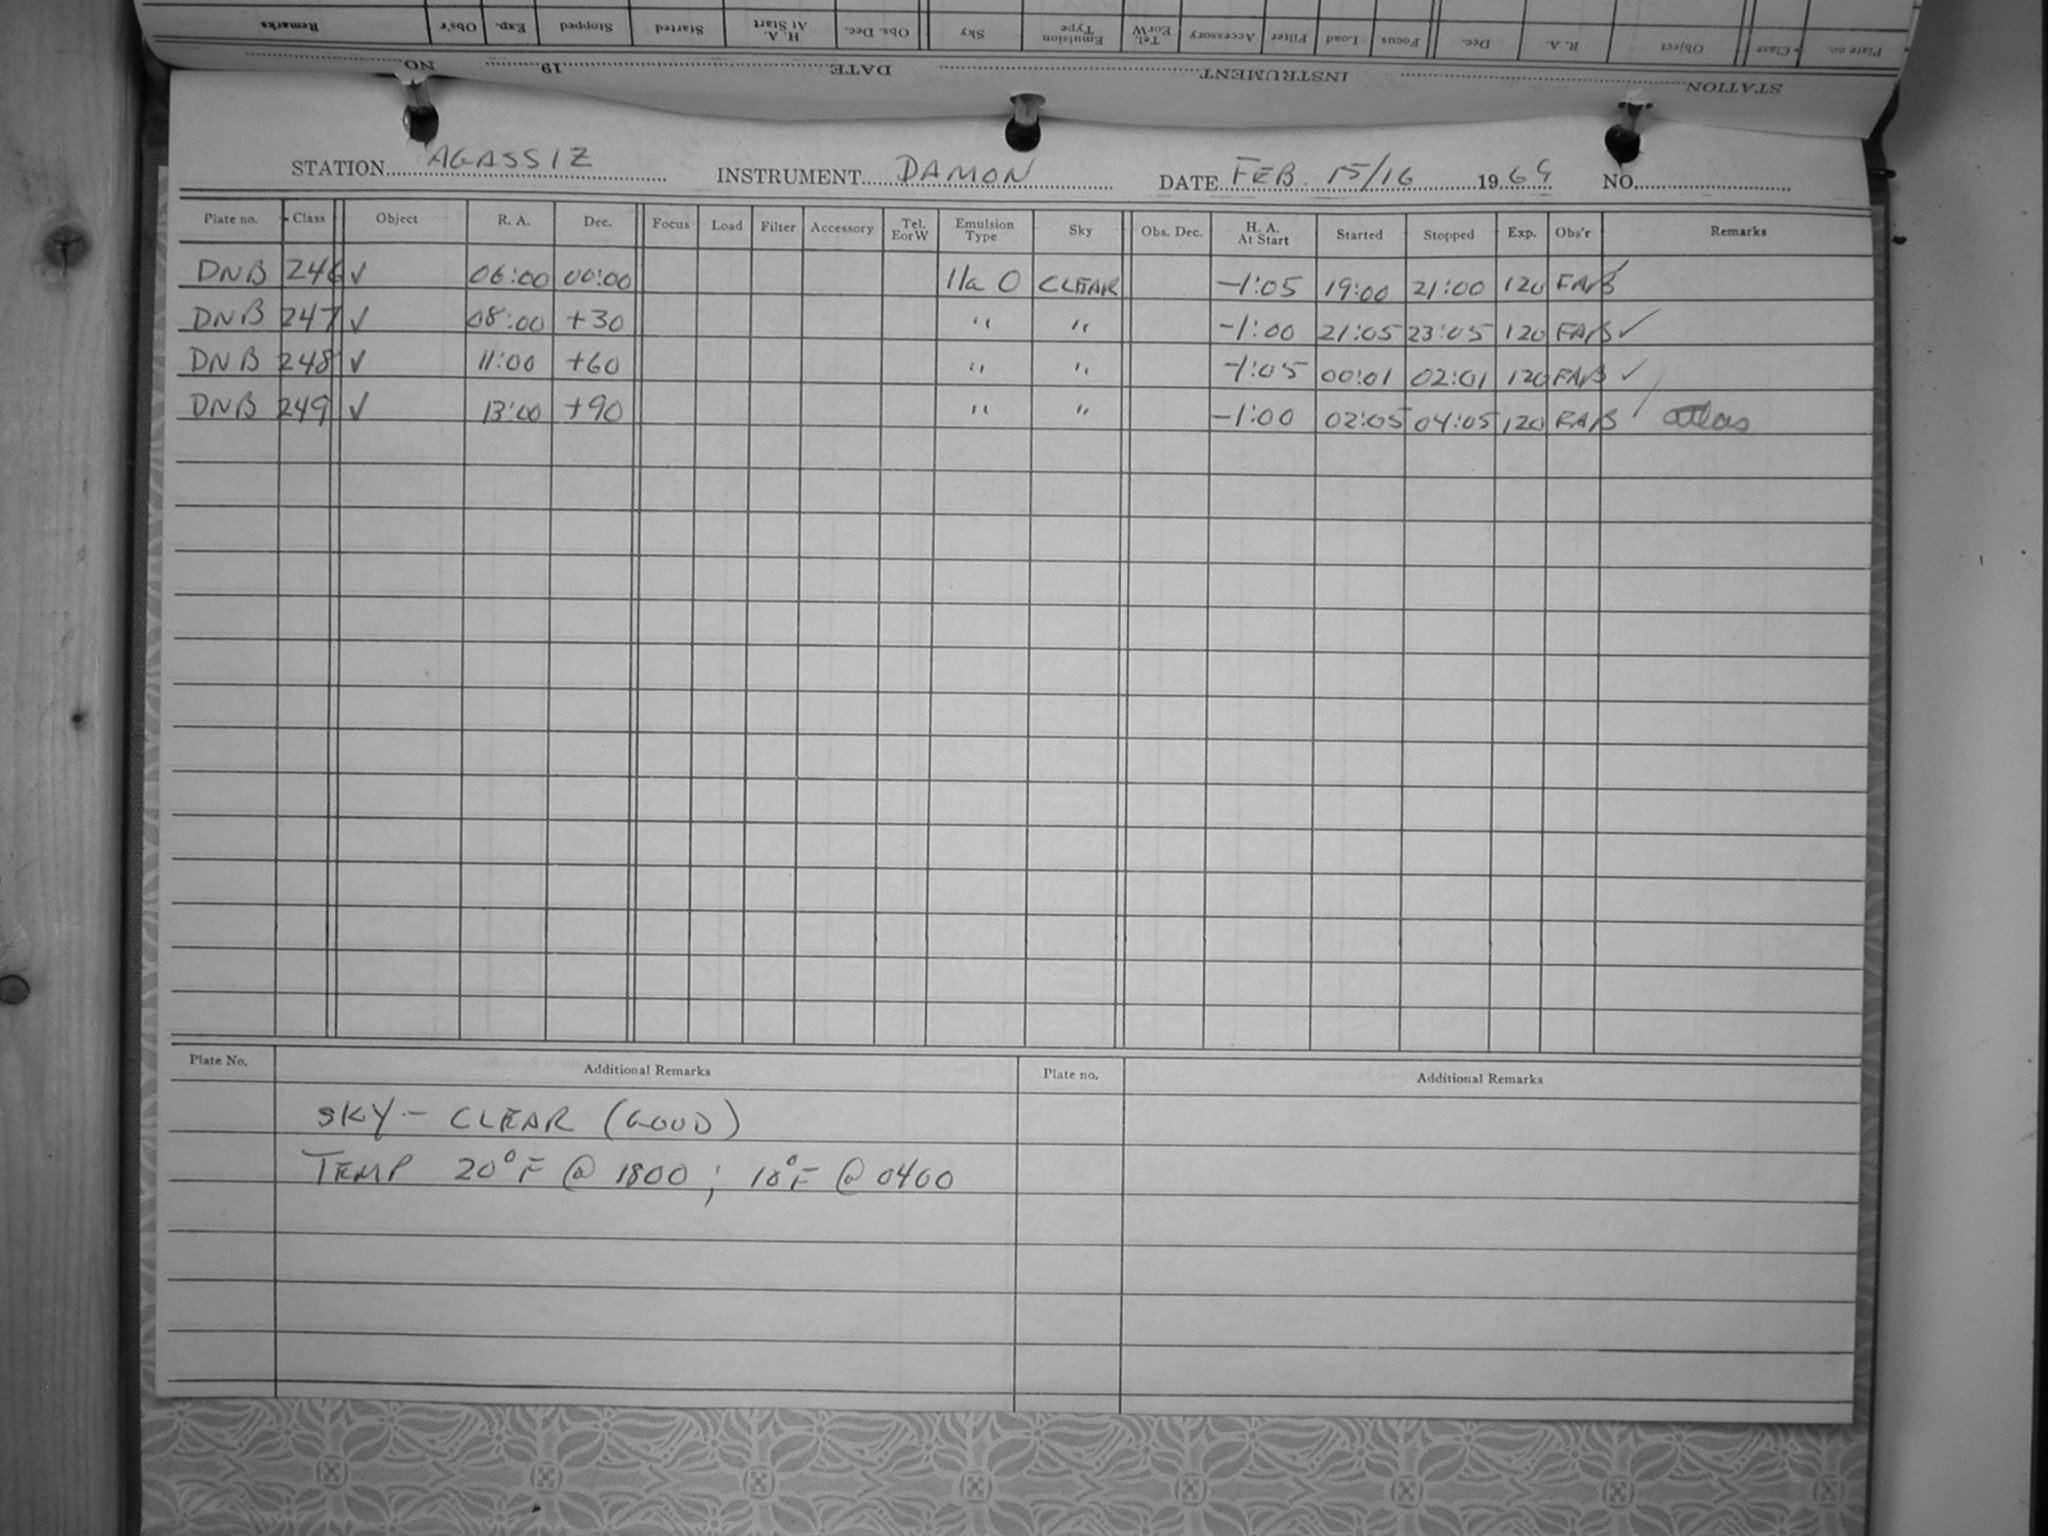 Remarks Obs'r Exp. Stopped Started H. A. At Start Obs. Dec. Sky Emulsion Type Tel. EorW Accessory Filter Load Focus Dec. R. A. Object Class Plate no.
NO. 19 DATE INSTRUMENT STATION
STATION AGASSIZ INSTRUMENT DAMON DATE FEB. 15/16 1969 NO.
Plate no. Class Object R. A. Dec. Focus Load Filter Accessory Tel. EorW Emulsion Type Sky Obs. Dec. H. A. At Start Started Stopped Exp. Obs'r Remarks
DNB 246 ✓ 06:00 00:00 IIa O CLEAR -1:05 19:00 21:00 120 FAB ✓
DNB 247 ✓ 08:00 +30 " " -1:00 21:05 23:05 120 FAB ✓
DNB 248 ✓ 11:00 +60 " " -1:05 00:01 02:01 120 FAB ✓
DNB 249 ✓ 13:00 +90 " " -1:00 02:05 04:05 120 FAB ✓ atlas
Plate No. Additional Remarks Plate no. Additional Remarks
SKY - CLEAR (GOOD)
TEMP 20°F @ 1800 ; 10°F @ 0400